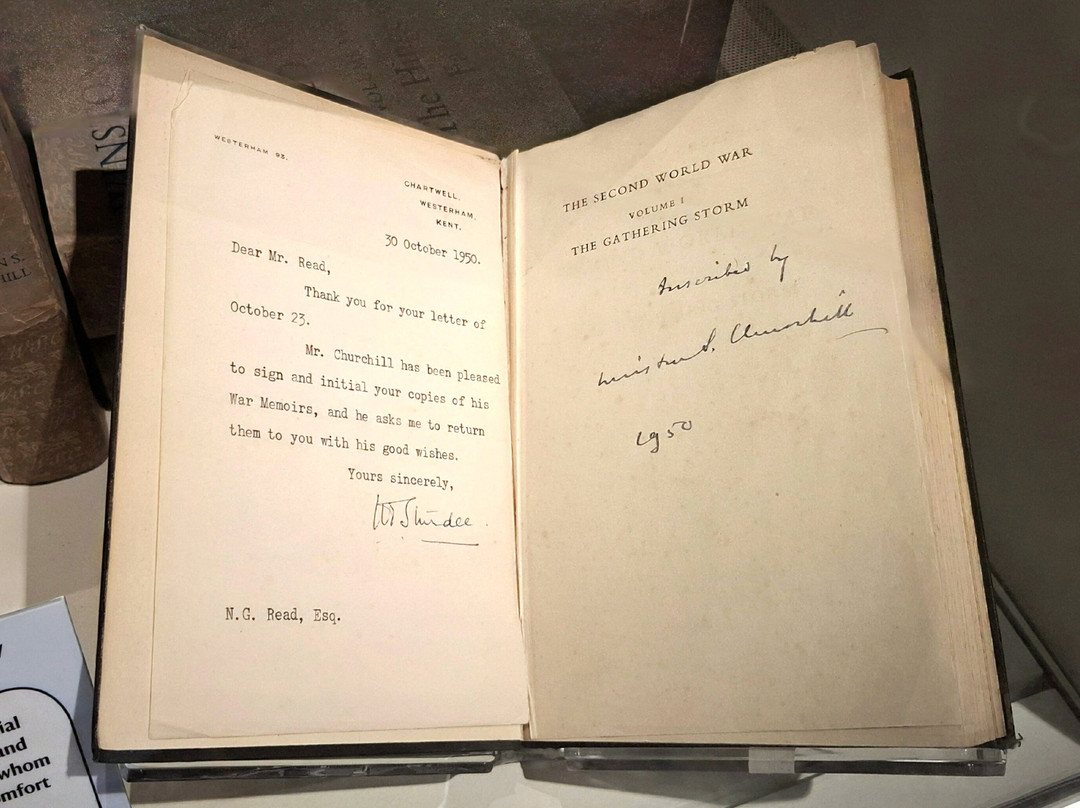 WESTERHAM 93.
CHARTWELL,
WESTERHAM,
KENT.
30 October 1950.
Dear Mr. Read,
Thank you for your letter of
October 23.
Mr. Churchill has been pleased
to sign and initial your copies of his
War Memoirs, and he asks me to return
them to you with his good wishes.
Yours sincerely,
N.G. Read, Esq.
THE SECOND WORLD WAR
VOLUME I
THE GATHERING STORM
Inscribed by
Winston S. Churchill
1950
The
NS
HILL
ial
and
whom
mfort